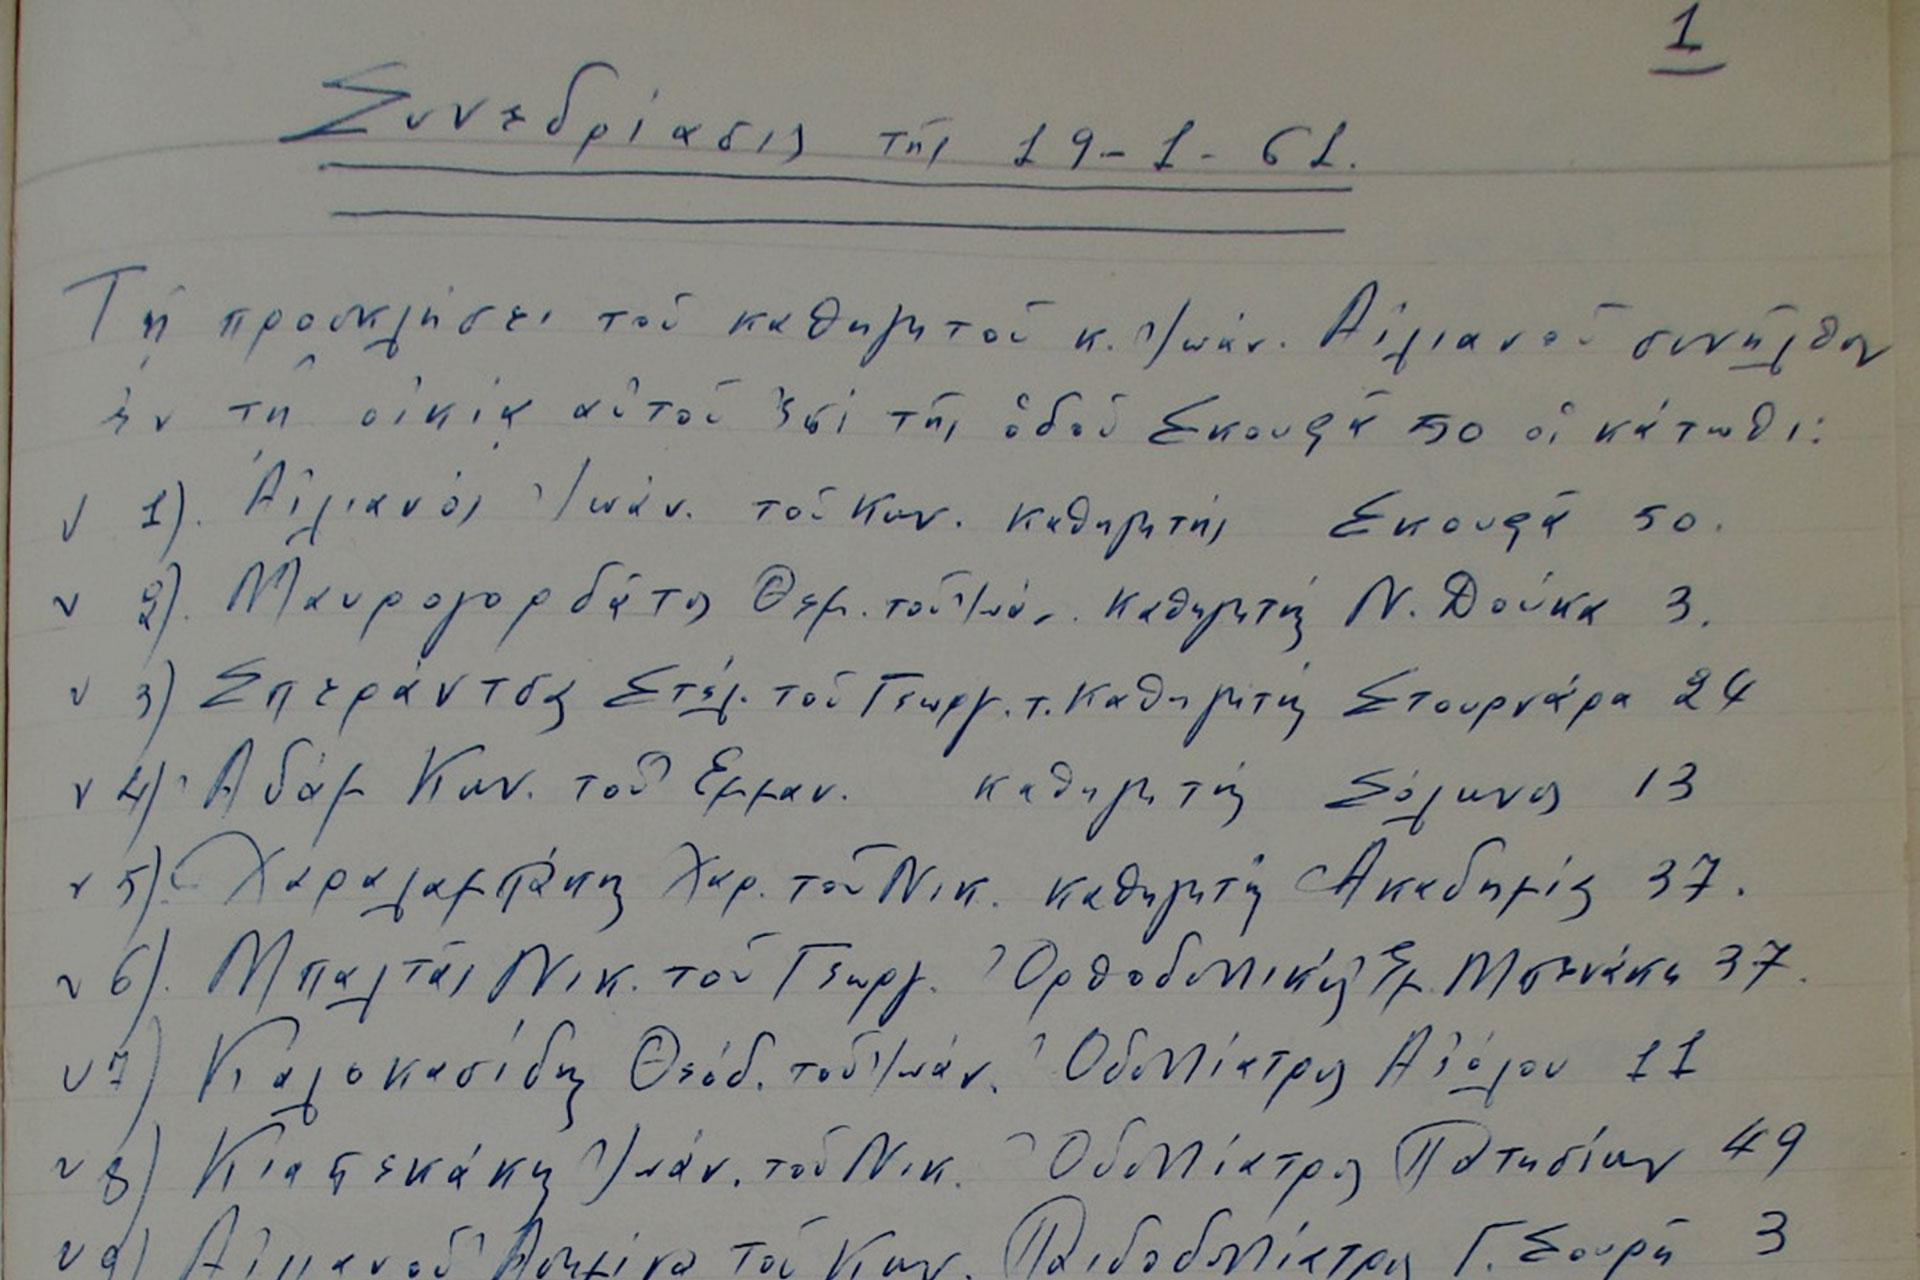 1
Συνεδρίασις τῆς 19-1-61.
Τῇ προσκλήσει τοῦ καθηγητοῦ κ. Ἰωάν. Αἰλιανοῦ συνῆλθον
ἐν τῇ οἰκίᾳ αὐτοῦ ἐπί τῆς ὁδοῦ Σκουφᾶ 50 οἱ κάτωθι:
ν 1). Αἰλιανός Ἰωάν. τοῦ Κων. καθηγητής Σκουφᾶ 50.
ν 2). Μαυρογορδᾶτος Θεμ. τοῦ Ἰωάν. καθηγητής Ν. Δούκα 3.
ν 3) Σπεράντσας Στέλ. τοῦ Γεωργ. τ. καθηγητής Στουρνάρα 24
ν 4) Ἀδάμ Κων. τοῦ Ἐμμαν. καθηγητής Σόλωνος 13
ν 5) Χαραλαμπάκης Χαρ. τοῦ Νικ. καθηγητής Ἀκαδημίας 37.
ν 6). Μπαλτᾶς Νικ. τοῦ Γεωργ. Ὀρθοδοντικός Ἐμ. Μπενάκη 37.
ν 7) Καλοκασίδης Θεόδ. τοῦ Ἰωάν. Ὀδοντίατρος Αἰόλου 11
ν 8) Κιαπεκάκης Ἰωάν. τοῦ Νικ. Ὀδοντίατρος Πατησίων 49
ν 9) Αἰλιανοῦ τοῦ Κων. Παιδοδοντίατρος Γ. Σουρῆ 3